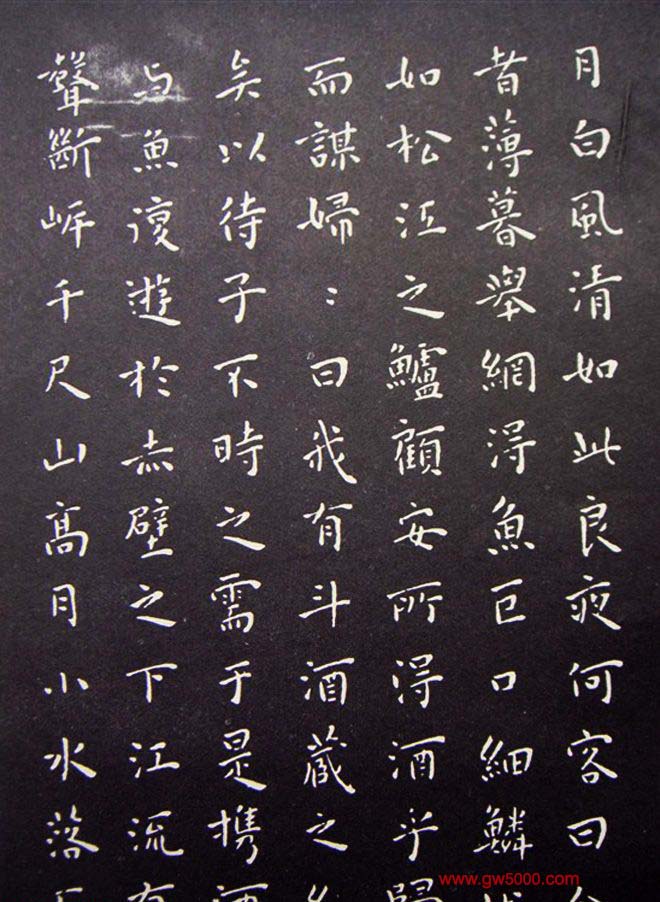 月白風清如此良夜何客曰
者薄暮舉網得魚巨口細鱗
如松江之鱸顧安所得酒乎歸
而謀婦〻曰我有斗酒藏之
矣以待子不時之需于是携酒
与魚復遊於赤壁之下江流有
聲斷岸千尺山髙月小水落
www.gw5000.com